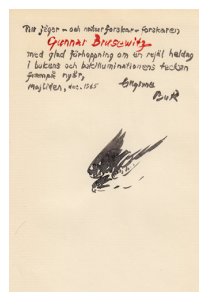 Till jägar- och naturforskar-forskaren
Gunnar Brusewitz
med glad förhoppning om en rejäl heldag
i bukens och bokilluminationens tecken
frampå nyåt,
dec. 1965